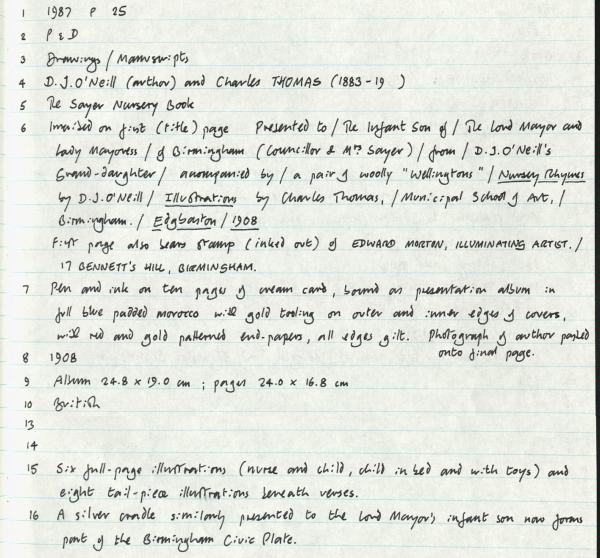 1 1987 P 25
2 P & D
3 Drawings / Manuscripts
4 D.J.O'Neill (author) and Charles THOMAS (1883-19 )
5 The Sayer Nursery Book
6 Inscribed on first (title) page Presented to / The Infant Son of / The Lord Mayor and
Lady Mayoress / of Birmingham (Councillor & Mrs Sayer) / from / D.J.O'Neill's
Grand-daughter / accompanied by / a pair of woolly "Wellingtons" / Nursery Rhymes
by D.J.O'Neill / Illustrations by Charles Thomas, / Municipal School of Art, /
Birmingham. / Edgbaston / 1908
First page also bears stamp (inked out) of EDWARD MORTON, ILLUMINATING ARTIST. /
17 BENNETT'S HILL, BIRMINGHAM.
7 Pen and ink on ten pages of cream card, bound as presentation album in
full blue padded morocco with gold tooling on outer and inner edges of covers,
with red and gold patterned end-papers, all edges gilt. Photograph of author pasted
onto final page.
8 1908
9 Album 24.8 x 19.0 cm ; pages 24.0 x 16.8 cm
10 British
13
14
15 Six full-page illustrations (nurse and child, child in bed and with toys) and
eight tail-piece illustrations beneath verses.
16 A silver cradle similarly presented to the Lord Mayor's infant son now forms
part of the Birmingham Civic Plate.